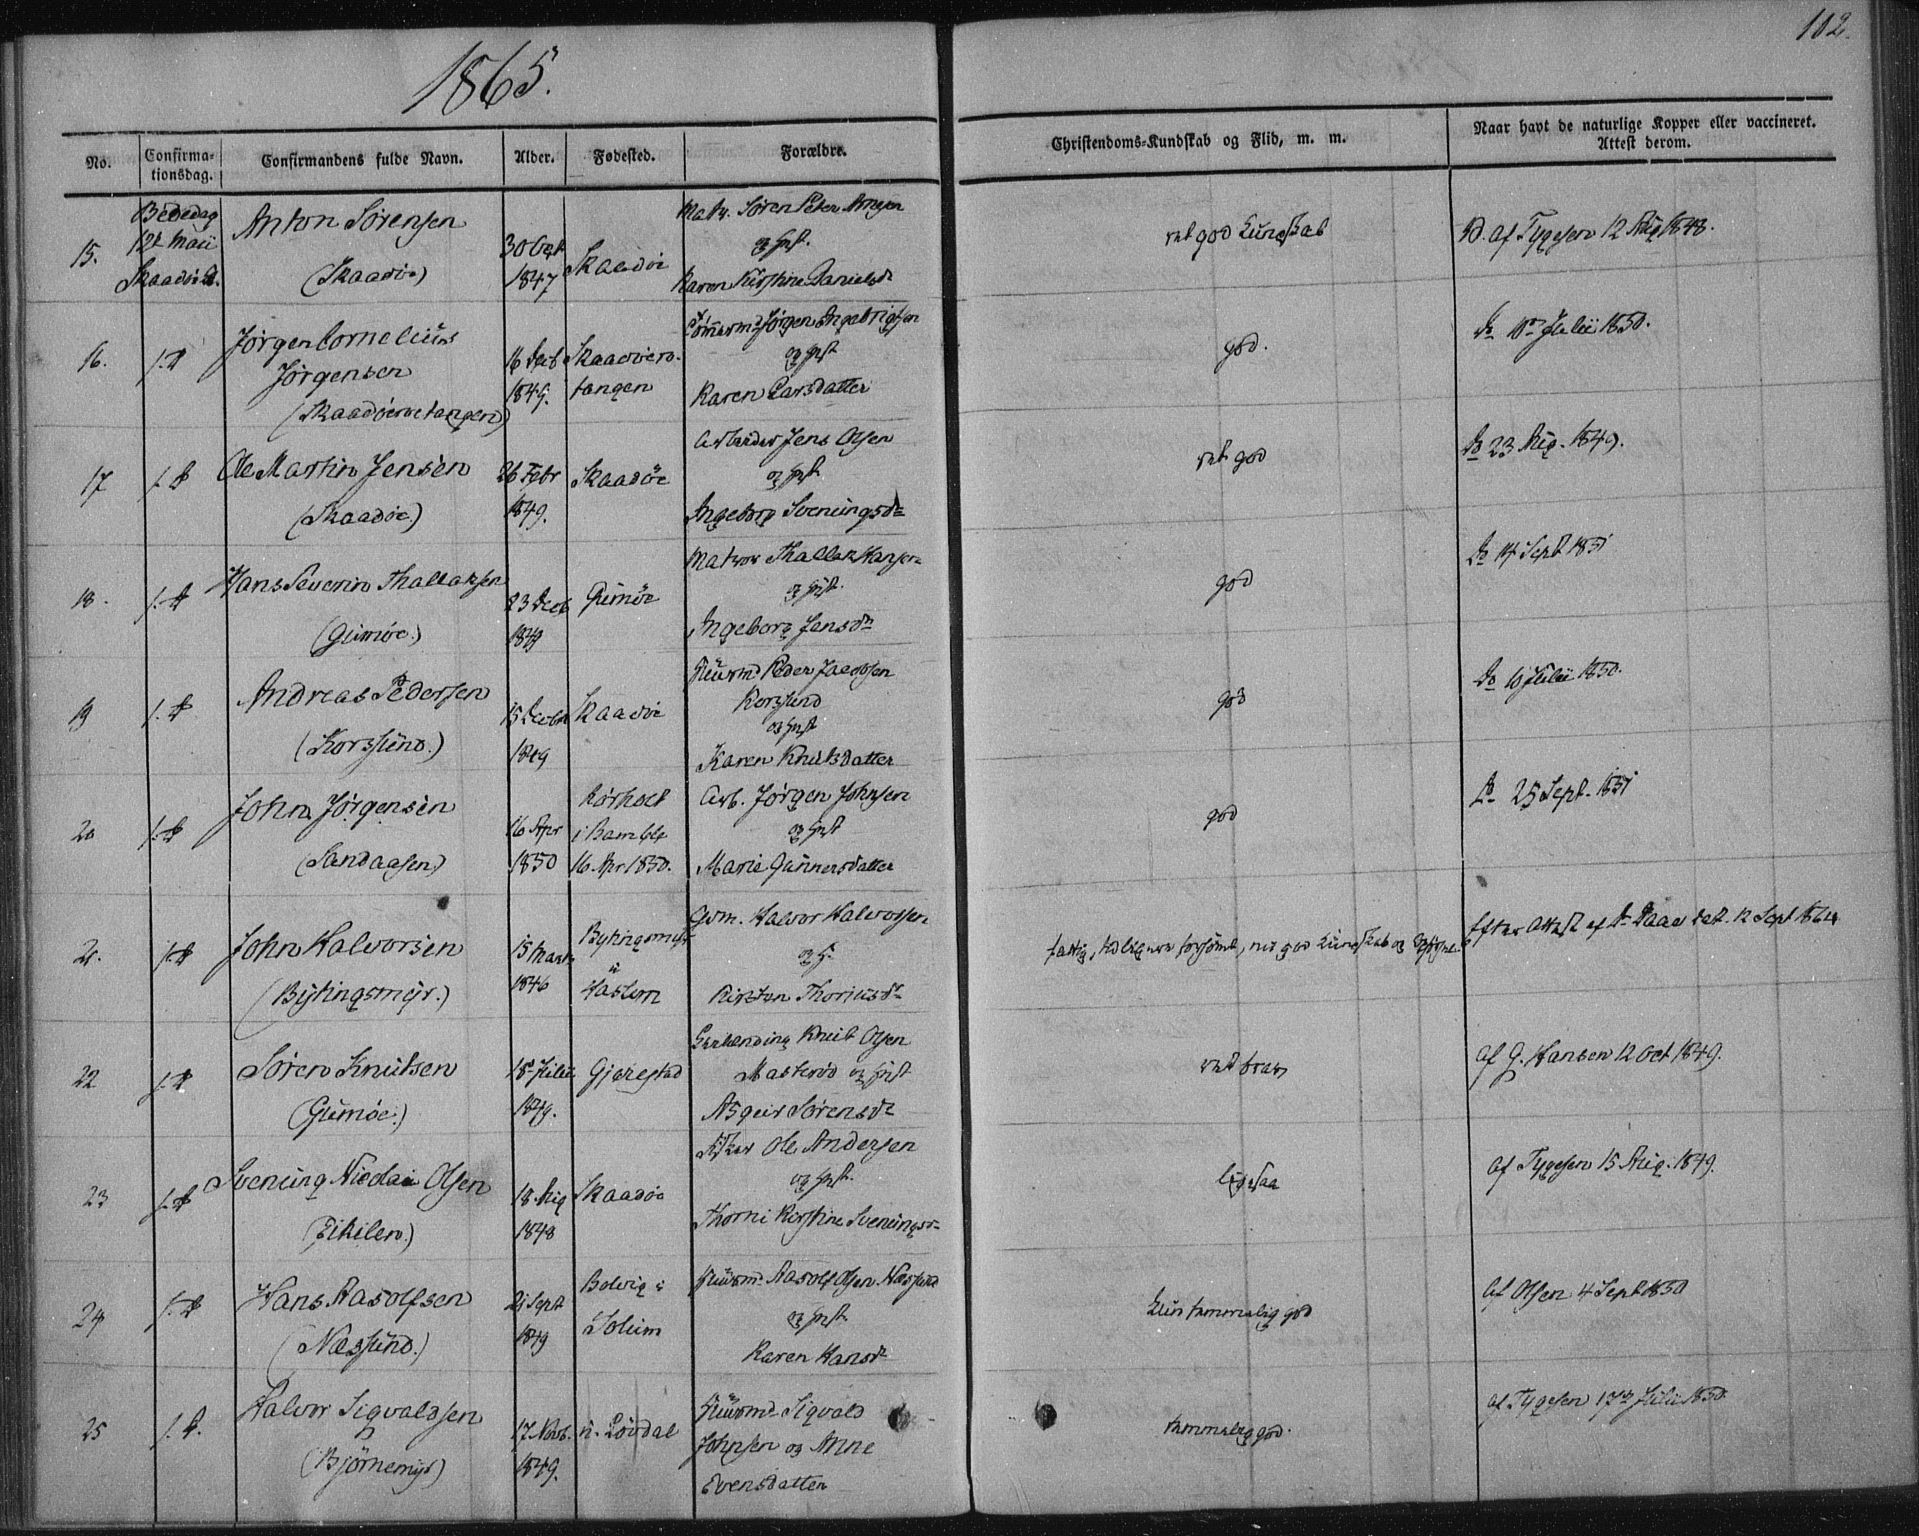 112.
1865.
No.
Confirma-
tionsdag.
Confirmandens fulde Navn.
Alder.
Fødested.
Forældre.
Christendoms-Kundskab og Flid, m. m.
Naar havt de naturlige Kopper eller vaccineret.
Attest derom.
15.
Bededag
12t Maii
Skaadøe
Anton Sørensen
(Skaadøe)
30 Oct
1847
Skaadøe
Matr. Søren Peter
og Hust.
Karen Kirstine Danielsd
ret god Kundskab
V. af Tygesen 12 Aug 1848.
16.
Jørgen Cornelius
Jørgensen
(Skaadøeroetangen)
16 Decb
1849.
Skaadøero-
tangen
Tømmermd Jørgen Ingebrigtsen
og Hust
Karen Larsdatter
god.
Do 10de Julii 1850.
17
Ole Martin Jensen
(Skaadøe)
26 Febr
1849.
Skaadøe
Arbeider Jens Olsen
og Hust.
Ingeborg Sveningsdr
ret god
Do 23 Aug. 1849.
18.
Hans Severin Thallaksen
(Gumøe.)
23 Decb
1849
Gumøe
Matros Thallak Hansen
og Hust.
Ingeborg Jensdr
god
Do 14 Sept 1851
19
Andreas Pedersen
(Korssund.)
15 Decbr
1849
Skaadøe
Huusmd Peder Jacobsen
Korssund
og Hust
Karen Knutsdatter
god
Do 10 Julii 1850.
20
John Jørgensen
(Sandaasen)
16 Apr
1850
Rørholt
i Bamble
16 Apr 1850.
Arb. Jørgen Johnsen
og Hust
Marie Gunnersdatter
god
Do 25 Sept. 1851
21.
John Halvorsen
(Bytingsmyr.)
15 Marts
1846
Bytingsmyr
Gdm. Halvor Halvorsen
og H.
Kirsten Thorjusdr
fattig, tidligere forsømt, nu god Kundskab og
Efter Attest af Dr Daae dat. 12 Sept 1864
22
Søren Knutsen
(Gumøe.)
18 Julii
1849.
Gjerestad
Knut Olsen
Masterød og Hust
Asgeir Sørensdr
ret brav
af G. Hansen 12 Oct 1849.
23
Svenung Nicolai Olsen
(Eikilen)
18 Aug
1848
Skaadøe
Fisker Ole Andersen
og Hust.
Thorni Kirstine Sveningsdr
ligesaa
af Tygesen 15 Aug. 1849.
24
Hans Aasolfsen
(Næssund.)
21 Sept
1849
Bolvig i
Solum
Huusmd Aasolf Olsen Næssund
og Hust.
Karen Hansdr
kun temmelig god
af Olsen 4 Sept 1850
25
Halvor Sigvaldsen
(Bjørnemyr)
17 Novb.
1849.
n. Lövdal
Huusmd Sigvald
Johnsen og Anne
Evensdatter
temmelig god.
af Tygesen 17de Julii 1850.